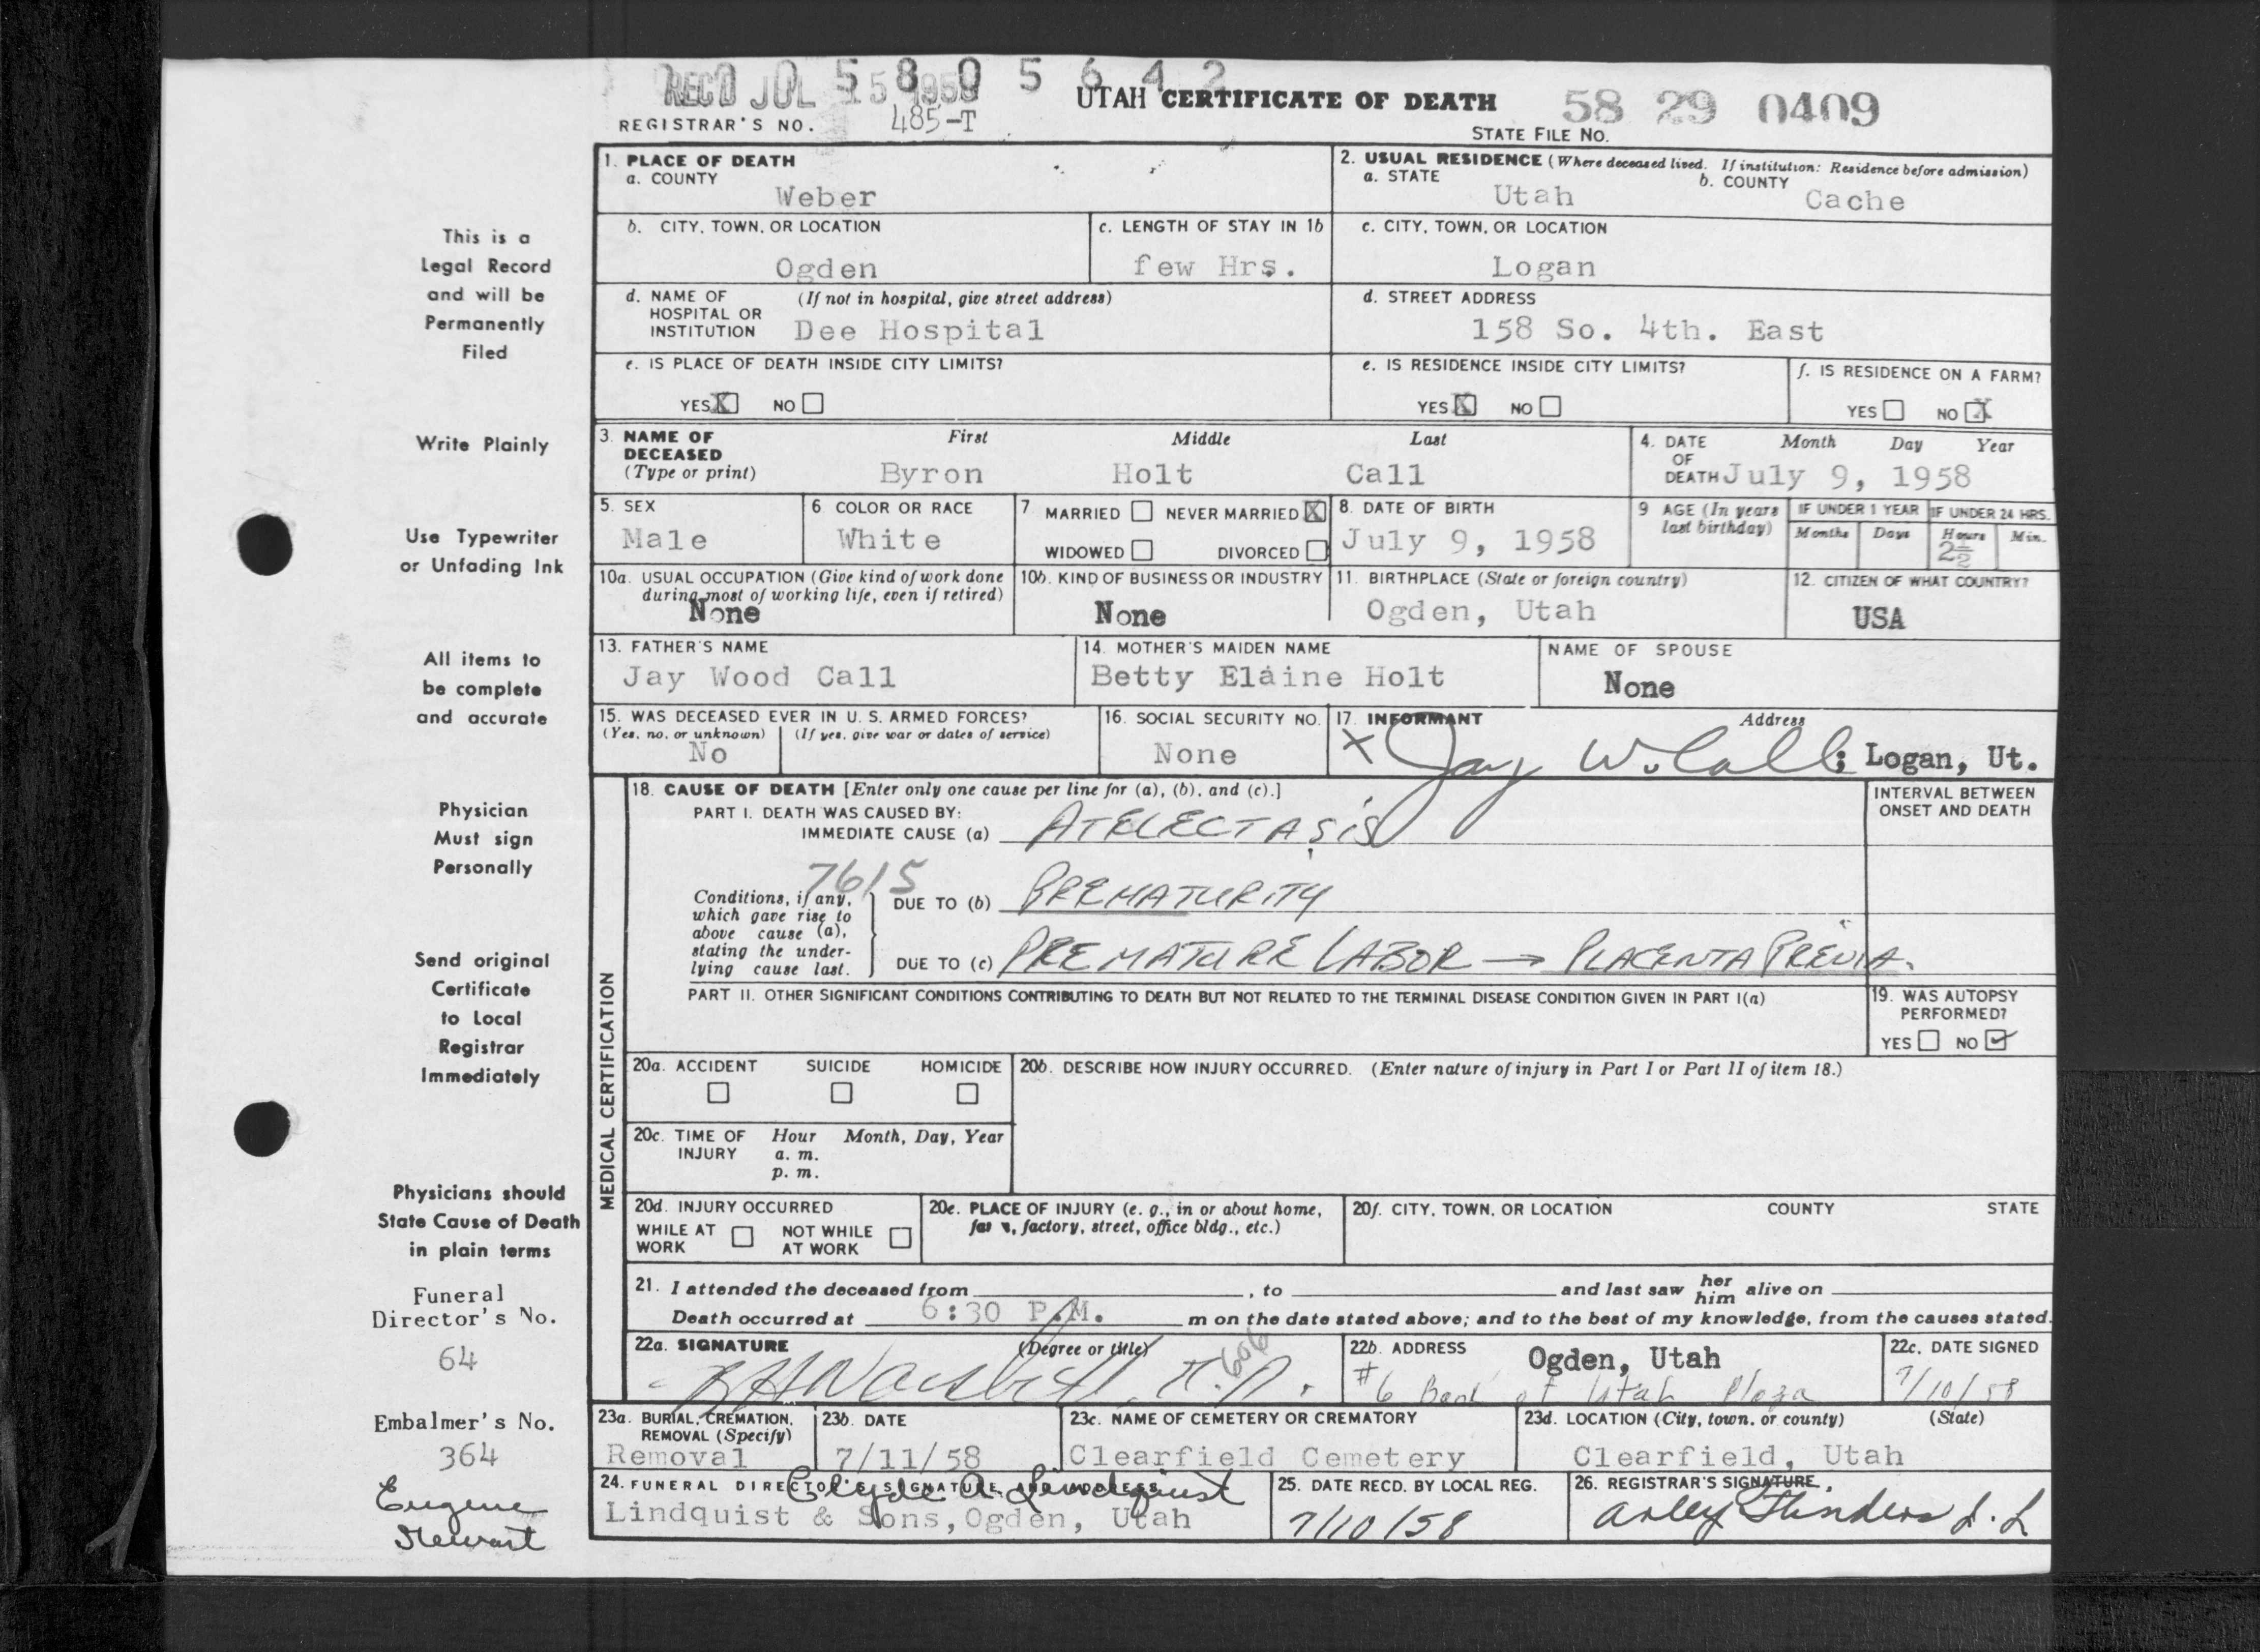 REC'D JUL 15 1958
0 5 8 0 5 6 4 2
UTAH CERTIFICATE OF DEATH
58 29 0409
REGISTRAR'S NO. 485-T
STATE FILE NO.
This is a
Legal Record
and will be
Permanently
Filed
Write Plainly
Use Typewriter
or Unfading Ink
All items to
be complete
and accurate
Physician
Must sign
Personally
Send original
Certificate
to Local
Registrar
Immediately
Physicians should
State Cause of Death
in plain terms
Funeral
Director's No.
64
Embalmer's No.
364
Eugene
Stewart
1. PLACE OF DEATH
a. COUNTY
Weber
2. USUAL RESIDENCE (Where deceased lived. If institution: Residence before admission)
a. STATE
Utah
b. COUNTY
Cache
b. CITY, TOWN, OR LOCATION
Ogden
c. LENGTH OF STAY IN 1b
few Hrs.
c. CITY, TOWN, OR LOCATION
Logan
d. NAME OF (If not in hospital, give street address)
HOSPITAL OR
INSTITUTION Dee Hospital
d. STREET ADDRESS
158 So. 4th. East
e. IS PLACE OF DEATH INSIDE CITY LIMITS?
YES X NO
e. IS RESIDENCE INSIDE CITY LIMITS?
YES X NO
f. IS RESIDENCE ON A FARM?
YES NO X
3. NAME OF
DECEASED
(Type or print)
First Middle Last
Byron Holt Call
4. DATE Month Day Year
OF
DEATH July 9, 1958
5. SEX
Male
6 COLOR OR RACE
White
7 MARRIED NEVER MARRIED X
WIDOWED DIVORCED
8. DATE OF BIRTH
July 9, 1958
9 AGE (In years
last birthday)
IF UNDER 1 YEAR
Months Days
IF UNDER 24 HRS.
Hours Min.
2½
10a. USUAL OCCUPATION (Give kind of work done
during most of working life, even if retired)
None
10b. KIND OF BUSINESS OR INDUSTRY
None
11. BIRTHPLACE (State or foreign country)
Ogden, Utah
12. CITIZEN OF WHAT COUNTRY?
USA
13. FATHER'S NAME
Jay Wood Call
14. MOTHER'S MAIDEN NAME
Betty Elaine Holt
NAME OF SPOUSE
None
15. WAS DECEASED EVER IN U. S. ARMED FORCES?
(Yes, no, or unknown) (If yes, give war or dates of service)
No
16. SOCIAL SECURITY NO.
None
17. INFORMANT Address
X Jay W. Call; Logan, Ut.
MEDICAL CERTIFICATION
18. CAUSE OF DEATH [Enter only one cause per line for (a), (b), and (c).]
PART I. DEATH WAS CAUSED BY:
IMMEDIATE CAUSE (a) ATELECTASIS
INTERVAL BETWEEN
ONSET AND DEATH
7615
Conditions, if any,
which gave rise to
above cause (a),
stating the under-
lying cause last.
DUE TO (b) PREMATURITY
DUE TO (c) PREMATURE LABOR → PLACENTA PREVIA.
PART II. OTHER SIGNIFICANT CONDITIONS CONTRIBUTING TO DEATH BUT NOT RELATED TO THE TERMINAL DISEASE CONDITION GIVEN IN PART I(a)
19. WAS AUTOPSY
PERFORMED?
YES NO ✓
20a. ACCIDENT SUICIDE HOMICIDE
20b. DESCRIBE HOW INJURY OCCURRED. (Enter nature of injury in Part I or Part II of item 18.)
20c. TIME OF Hour Month, Day, Year
INJURY a. m.
p. m.
20d. INJURY OCCURRED
WHILE AT NOT WHILE
WORK AT WORK
20e. PLACE OF INJURY (e. g., in or about home,
farm, factory, street, office bldg., etc.)
20f. CITY, TOWN, OR LOCATION COUNTY STATE
21. I attended the deceased from , to and last saw her him alive on
Death occurred at 6:30 P.M. m on the date stated above; and to the best of my knowledge, from the causes stated.
22a. SIGNATURE (Degree or title)
M.D.
606
22b. ADDRESS Ogden, Utah
#6 Bank of Utah Plaza
22c. DATE SIGNED
7/10/58
23a. BURIAL, CREMATION,
REMOVAL (Specify)
Removal
23b. DATE
7/11/58
23c. NAME OF CEMETERY OR CREMATORY
Clearfield Cemetery
23d. LOCATION (City, town, or county) (State)
Clearfield, Utah
24. FUNERAL DIRECTOR'S SIGNATURE AND ADDRESS
Clyde A. Lindquist
Lindquist & Sons, Ogden, Utah
25. DATE RECD. BY LOCAL REG.
7/10/58
26. REGISTRAR'S SIGNATURE
Arley Flinders